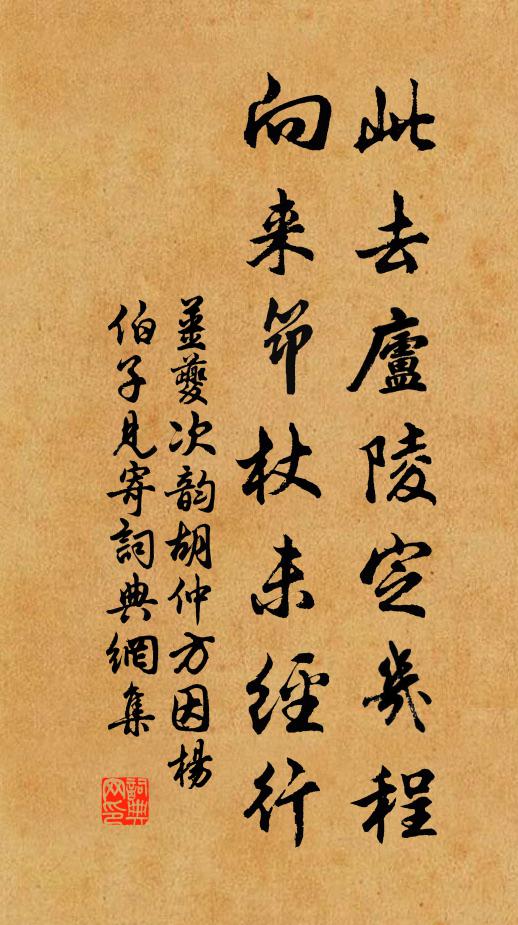 此去廬陵定幾程
向来筇杖未經行
姜夔次韵胡仲方因楊
伯子見寄詞典網集
詞典
网印